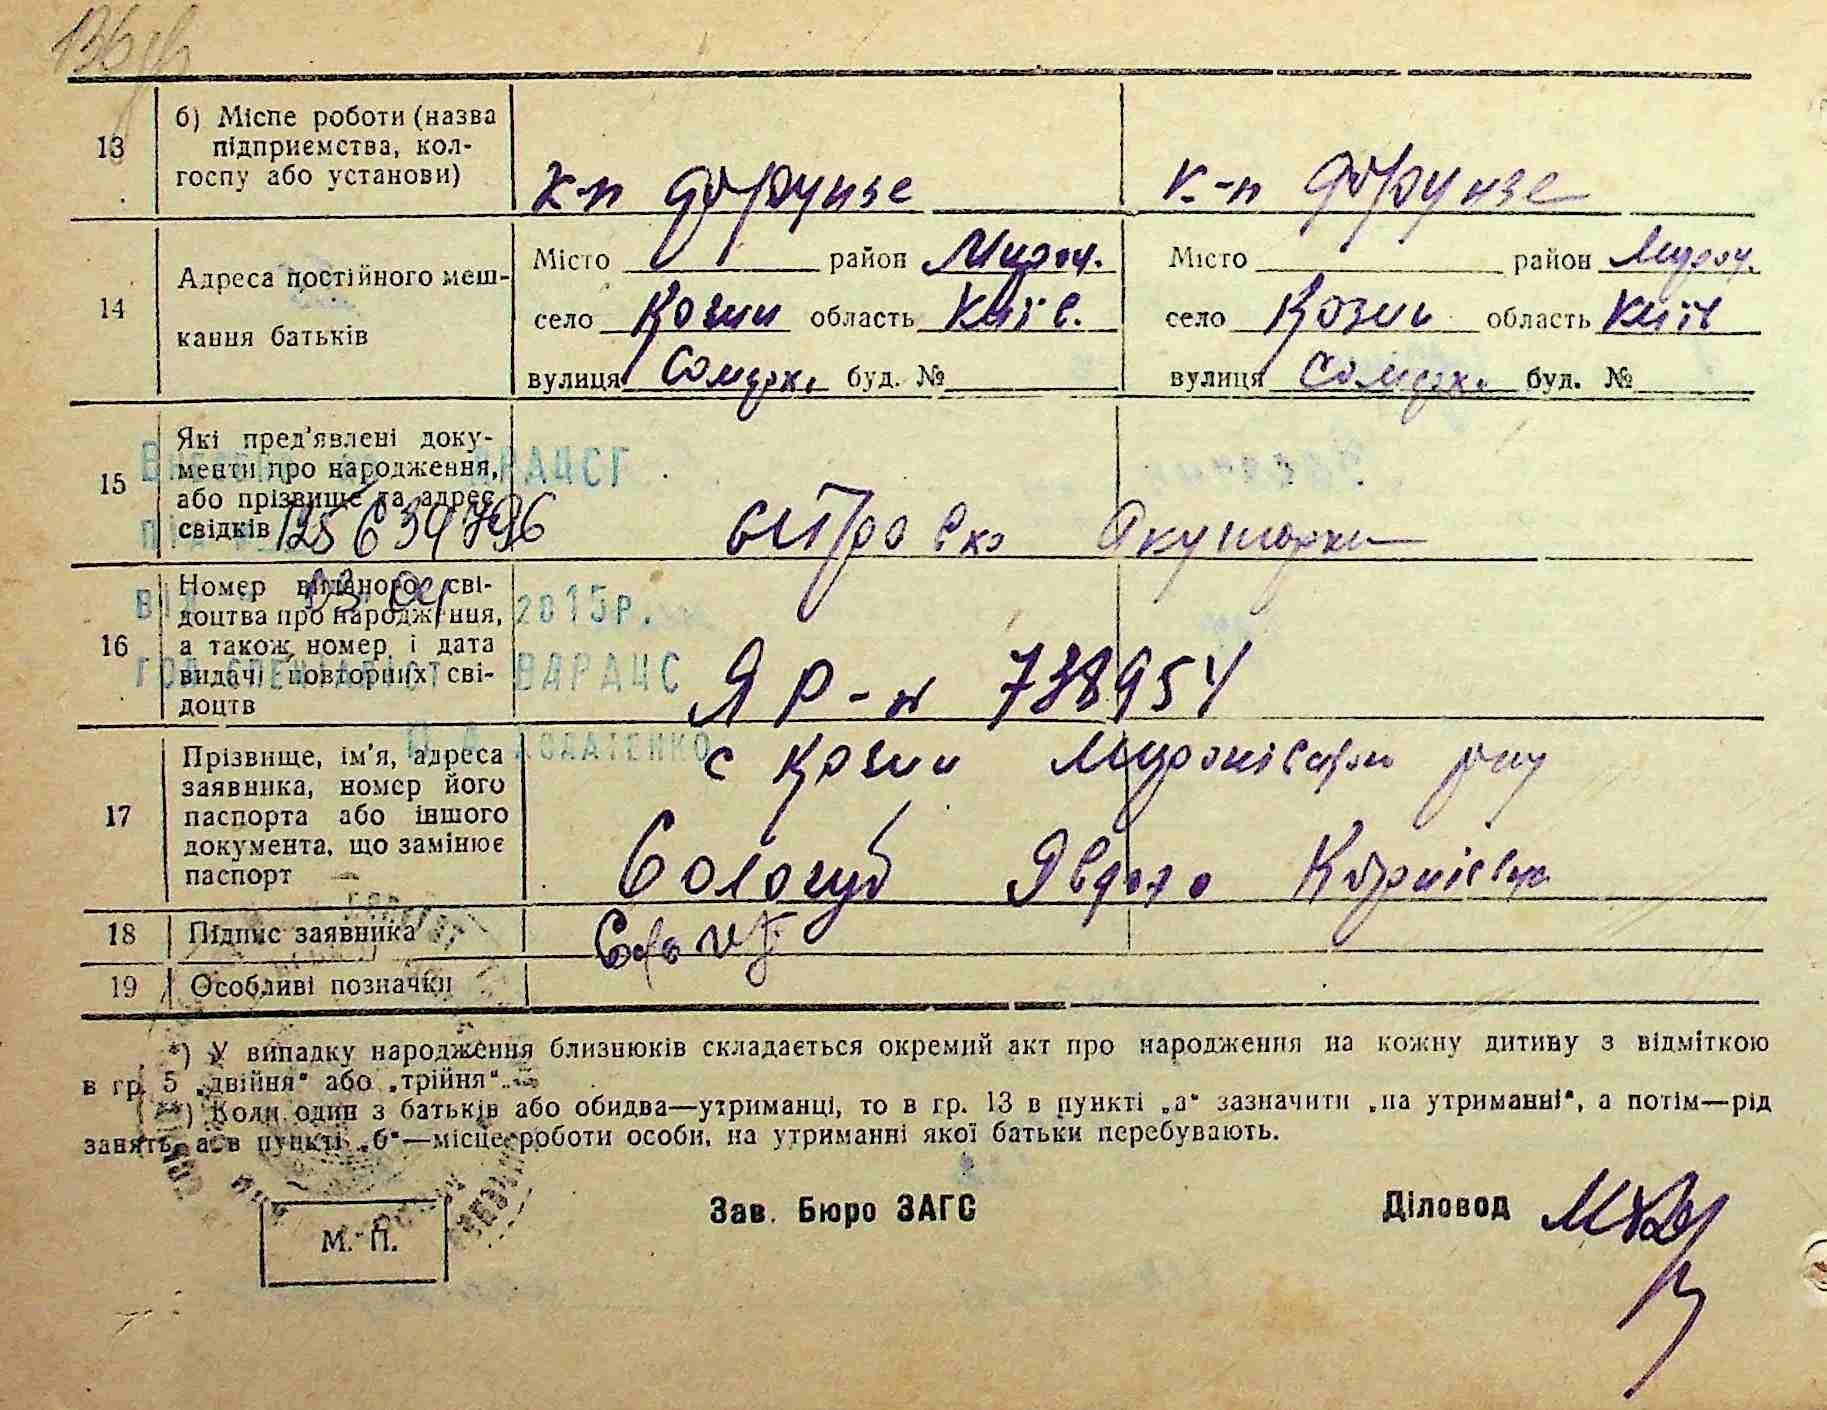 136
13 б) Місце роботи (назва
підприємства, кол-
госпу або установи)
к-п Фрунзе к-п Фрунзе
14 Адреса постійного меш-
кання батьків
Місто район Мирон. Місто район Мирон.
село Козин область Київ. село Козин область Київ
вулиця буд. № вулиця буд. №
15 Які пред'явлені доку-
менти про народження,
або прізвище та адрес
свідків
ДРАЦСГ
Акушерки
16 Номер виданого сві-
доцтва про народження,
а також номер і дата
видачі повторних сві-
доцтв
2015р.
ГОЛ.СПЕЦІАЛІСТ ВДРАЦС
Я Р-н 738954
17 Прізвище, ім'я, адреса
заявника, номер його
паспорта або іншого
документа, що замінює
паспорт
с Козин Миронівського р-ну
Сологуб Явдоха Корніївна
18 Підпис заявника
19 Особливі позначки
*) У випадку народження близнюків складається окремий акт про народження на кожну дитину з відміткою
в гр. 5 „двійня" або „трійня".
*) Коли один з батьків або обидва—утриманці, то в гр. 13 в пункті „а" зазначити „на утриманні", а потім—рід
занять, а в пункті „б"—місце роботи особи, на утриманні якої батьки перебувають.
Зав. Бюро ЗАГС Діловод
М. П.